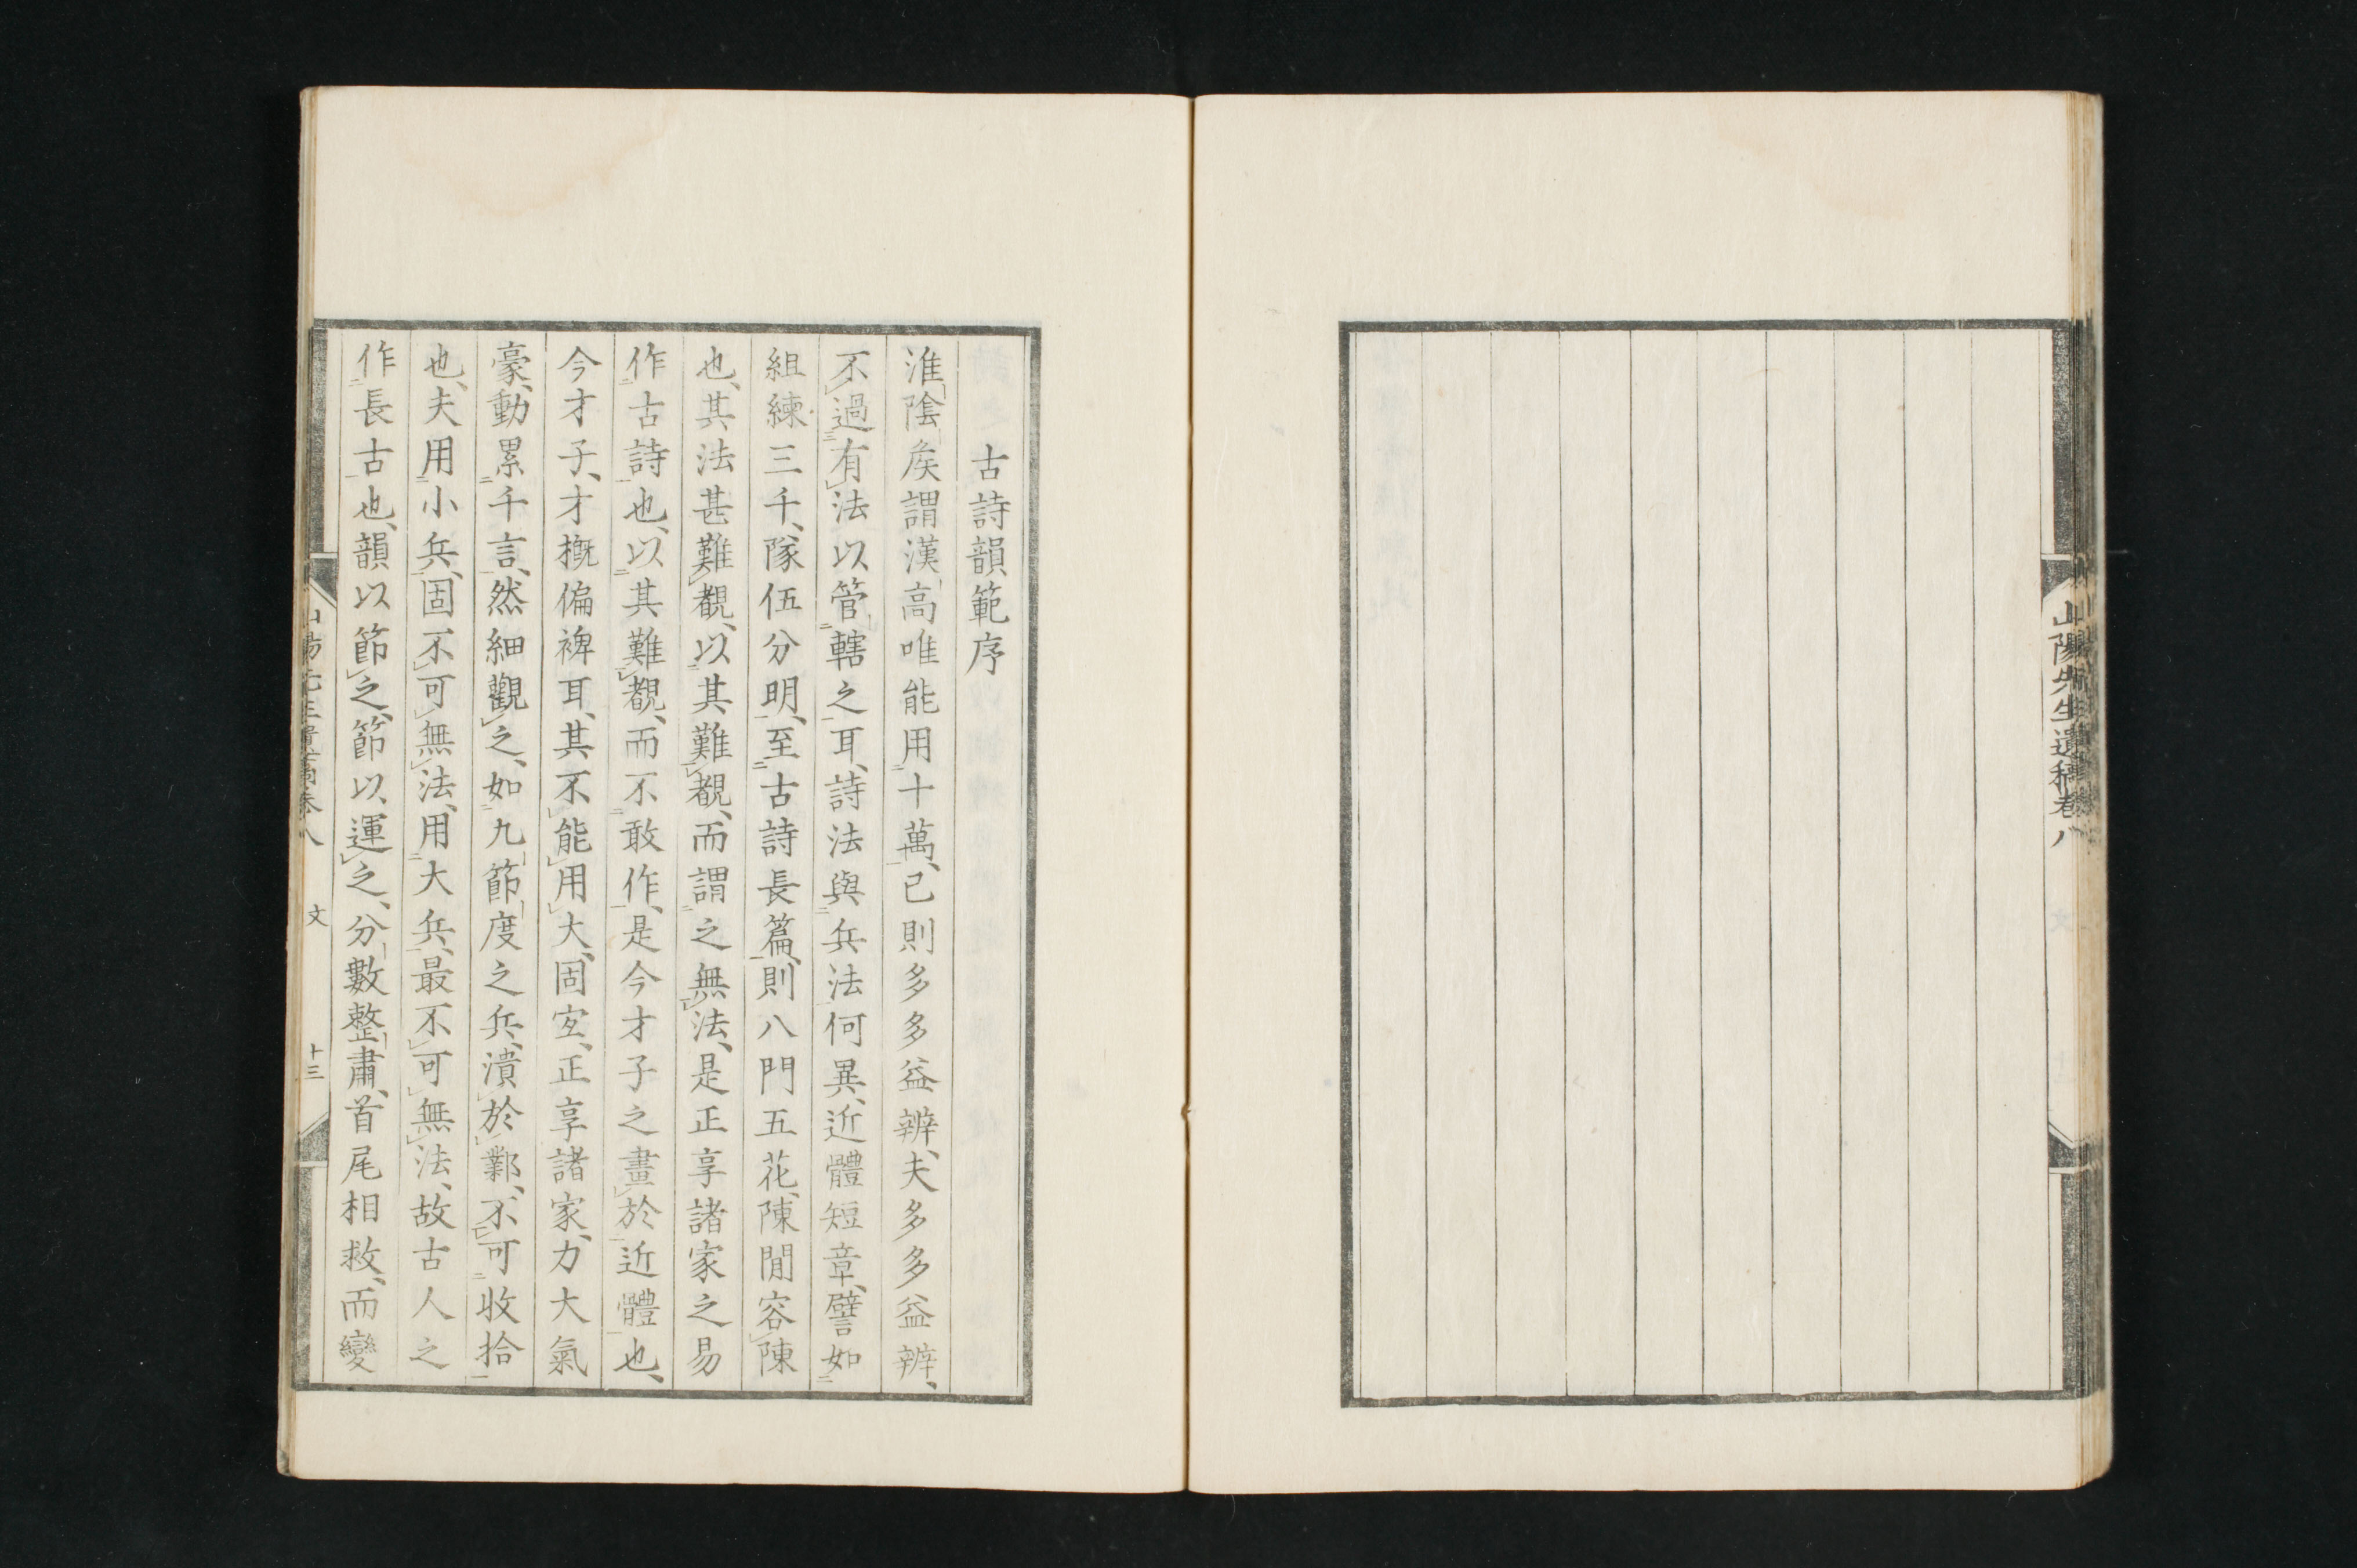 山陽先生遺稿卷八
古詩韻範序
淮陰矦謂漢高唯能用十萬、己則多多益辨、夫多多益辨、
不過有法以管轄之耳、詩法與兵法何異、近體短章、譬如
組練三千、隊伍分明、至古詩長篇、則八門五花、陳間容陳
也、其法甚難覩、以其難覩、而謂之無法、是正享諸家之易
作古詩也、以其難覩、而不敢作、是今才子之畫於近體也、
今才子、才摡偏裨耳、其不能用大、固宐、正享諸家、力大氣
豪、動累千言、然細觀之、如九節度之兵、潰於鄴、不可收拾
也、夫用小兵、固不可無法、用大兵、最不可無法、故古人之
作長古也、韻以節之、節以運之、分數整肅、首尾相救、而變
山陽先生遺稿卷八 文 十三